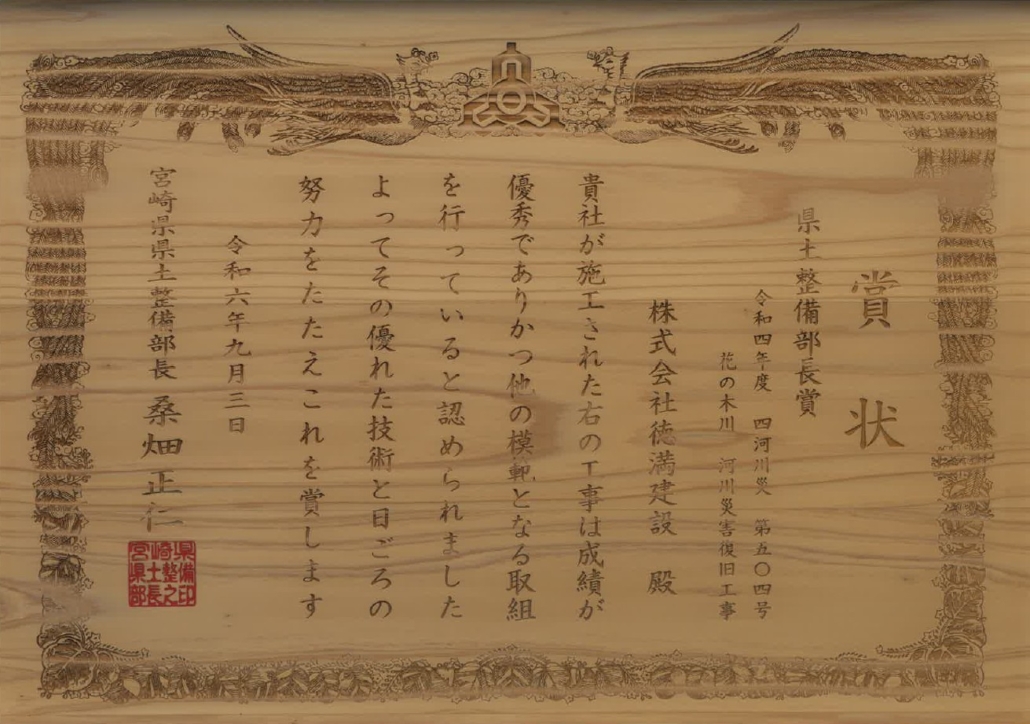 賞状
県土整備部長賞
令和四年度　四河川災　第五〇四号
花の木川　河川災害復旧工事
株式会社徳満建設　殿
貴社が施工された右の工事は成績が
優秀でありかつ他の模範となる取組
を行っていると認められました
よってその優れた技術と日ごろの
努力をたたえこれを賞します
令和六年九月三日
宮崎県県土整備部長　桑畑正仁
宮崎県土整備部長之印